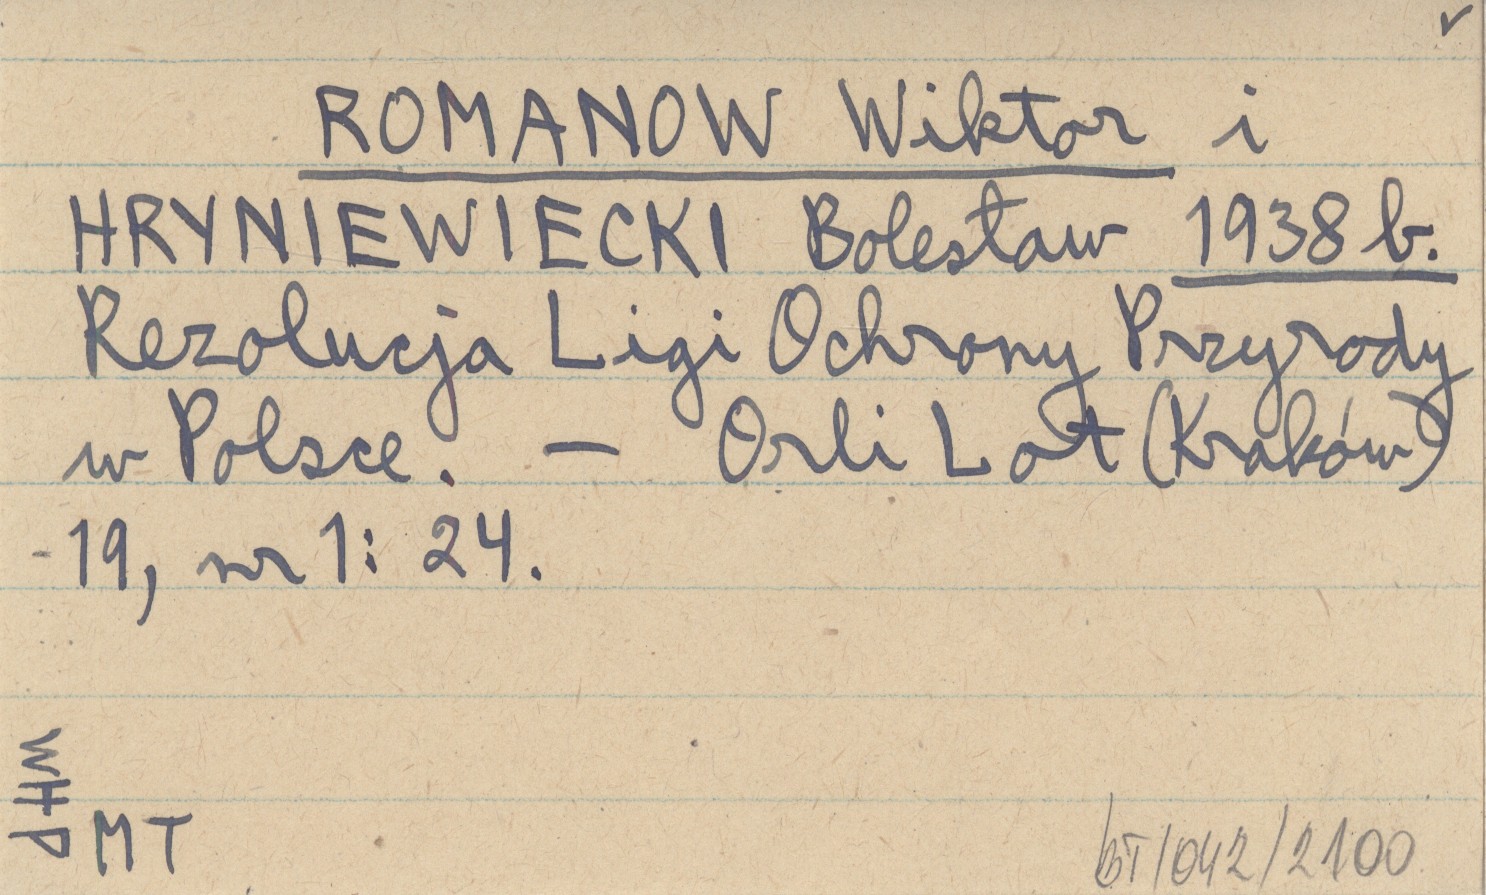 ✓
ROMANOW Wiktor i
HRYNIEWIECKI Bolesław 1938 b.
Rezolucja Ligi Ochrony Przyrody
w Polsce. — Orli Lot (Kraków)
-19, nr 1: 24.
WHP
MT
BT/042/2100